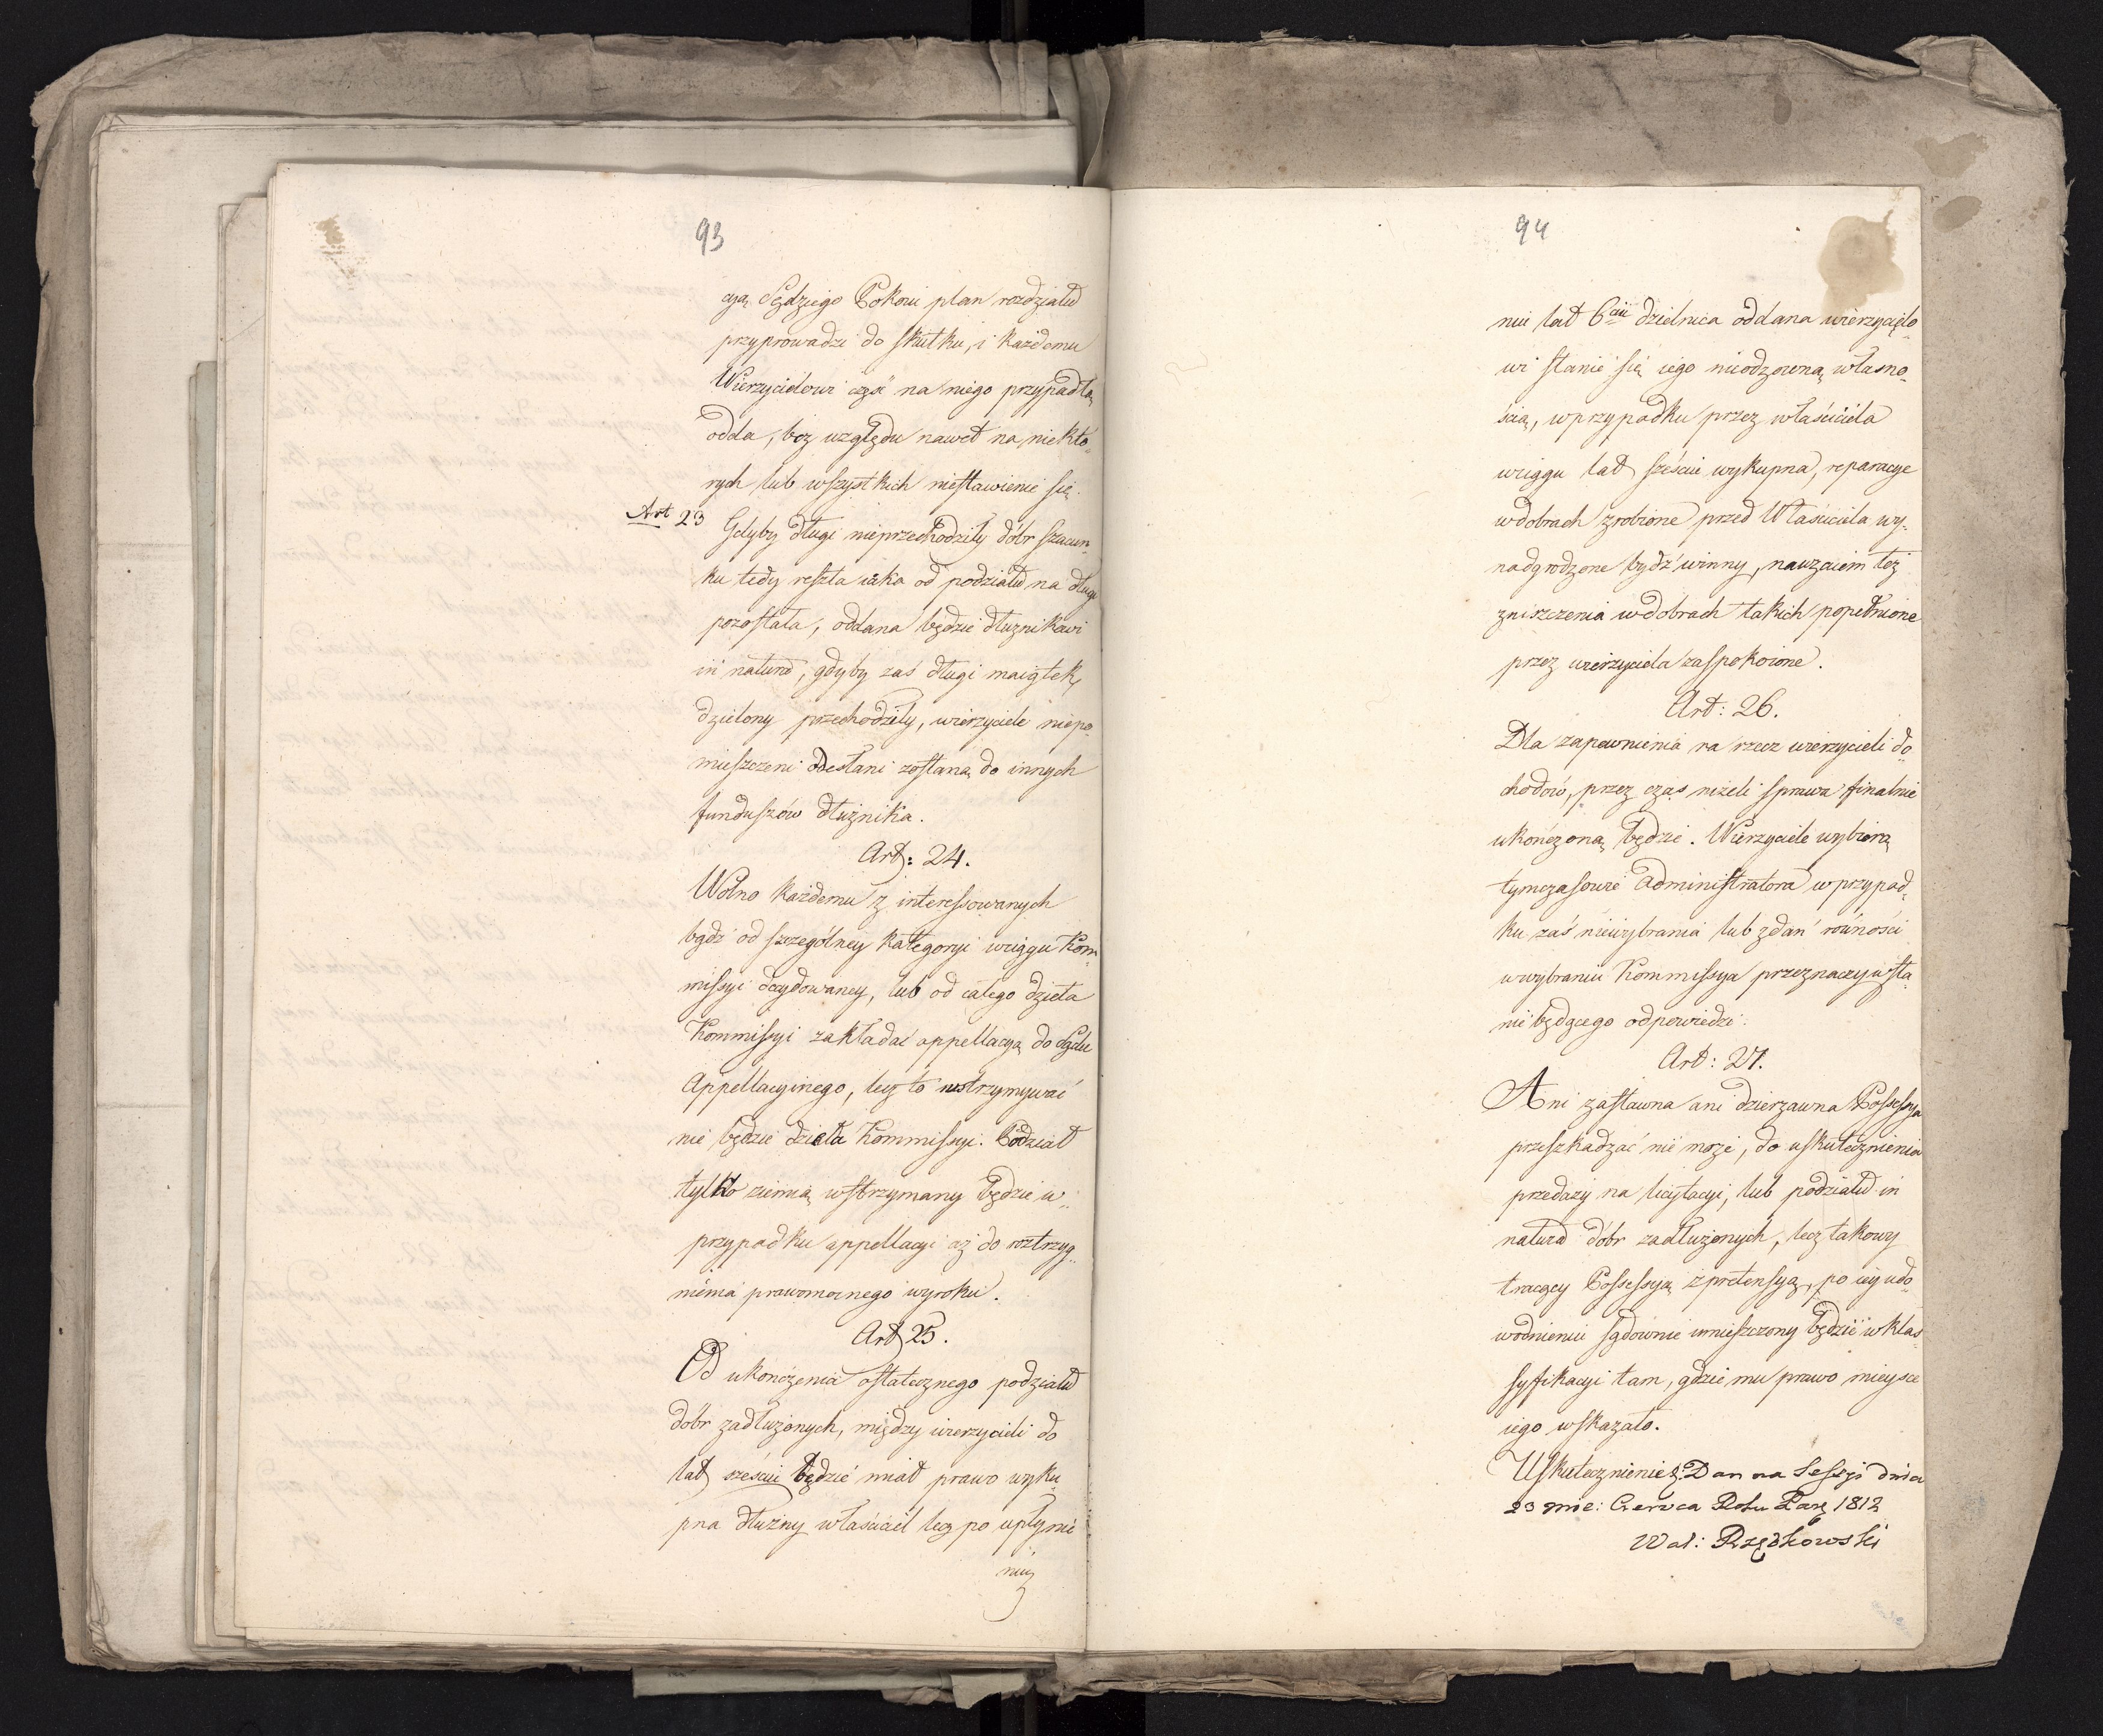 93
cyą Sędziego Pokoiu plan rozdziału
przyprowadzi do skutku, i każdemu
Wierzycielowi część na niego przypadłą
odda, bez względu nawet na niektó„
rych lub wszystkich niestawienie się.
Art 23 Gdyby długi nieprzechodziły dóbr szacun„
ku tedy reszta iaka od podziału na długi
pozostała, oddana będzie dłużnikowi
in natura, gdyby zaś długi maiątek
dzielony przechodziły, wierzyciele niepo„
mieszczeni odesłani zostaną do innych
funduszów dłużnika.
Art: 24.
Wolno każdemu z interessowanych
bądź od szczególney kategoryi wciągu Kom„
missyi decydowaney, lub od całego dzieła
Kommissyi zakładać appellacyą do Sądu
Appellacyinego, lecz to wstrzymywać
nie będzie dzieła Kommissyi. Podział
tylko ziemią wstrzymany będzie w„
przypadku appellacyi aż do roztrzyg„
nienia prawomocnego wyroku.
Art 25.
Od ukończenia ostatecznego podziału
dóbr zadłużonych, między wierzycieli do
lat sześciu będzie miał prawo wyku„
pna dłużny właściciel lecz po upłynie„
niu
94
niu lat 6ciu dzielnica oddana wierzycielo„
wi stanie się iego nieodzowną własno„
ścią, wprzypadku przez właściciela
wciągu lat sześciu wykupna, reparacye
wdobrach zrobione przed Właściciela wy„
nadgrodzone bydź winny, nawzaiem też
zniszczenia wdobrach takich popełnione
przez wierzyciela zaspokoione.
Art: 26.
Dla zapewnienia na rzecz wierzycieli do„
chodów, przez czas niżeli sprawa finalnie
ukończoną będzie. Wierzyciele wybiorą
tymczasowie Administratora wprzypad„
ku zaś niewybrania lub zdań równości
wwybraniu Kommissya przeznaczy wsta„
nie będącego odpowiedzi.
Art: 27.
Ani zastawna ani dzierzawna Possessya
przeszkadzać nie może, do uskutecznienia
przedaży na licytacyi, lub podziału in
natura dóbr zadłużonych, lecz takowy
tracący Possessyą z pretensyą, po iey udo„
wodnieniu sądownie umieszczony będzie wklas„
syfikacyi tam, gdzie mu prawo mieysce
iego wskazało.
Uskutecznienie Dan na Sessyi dnia
23 Mie: Czerwca Roku Pańs 1812
Wal: Rzędkowski